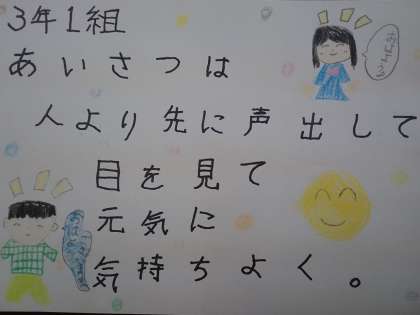 3年1組
あいさつは
人より先に声出して
目を見て
元気に
気持ちよく。